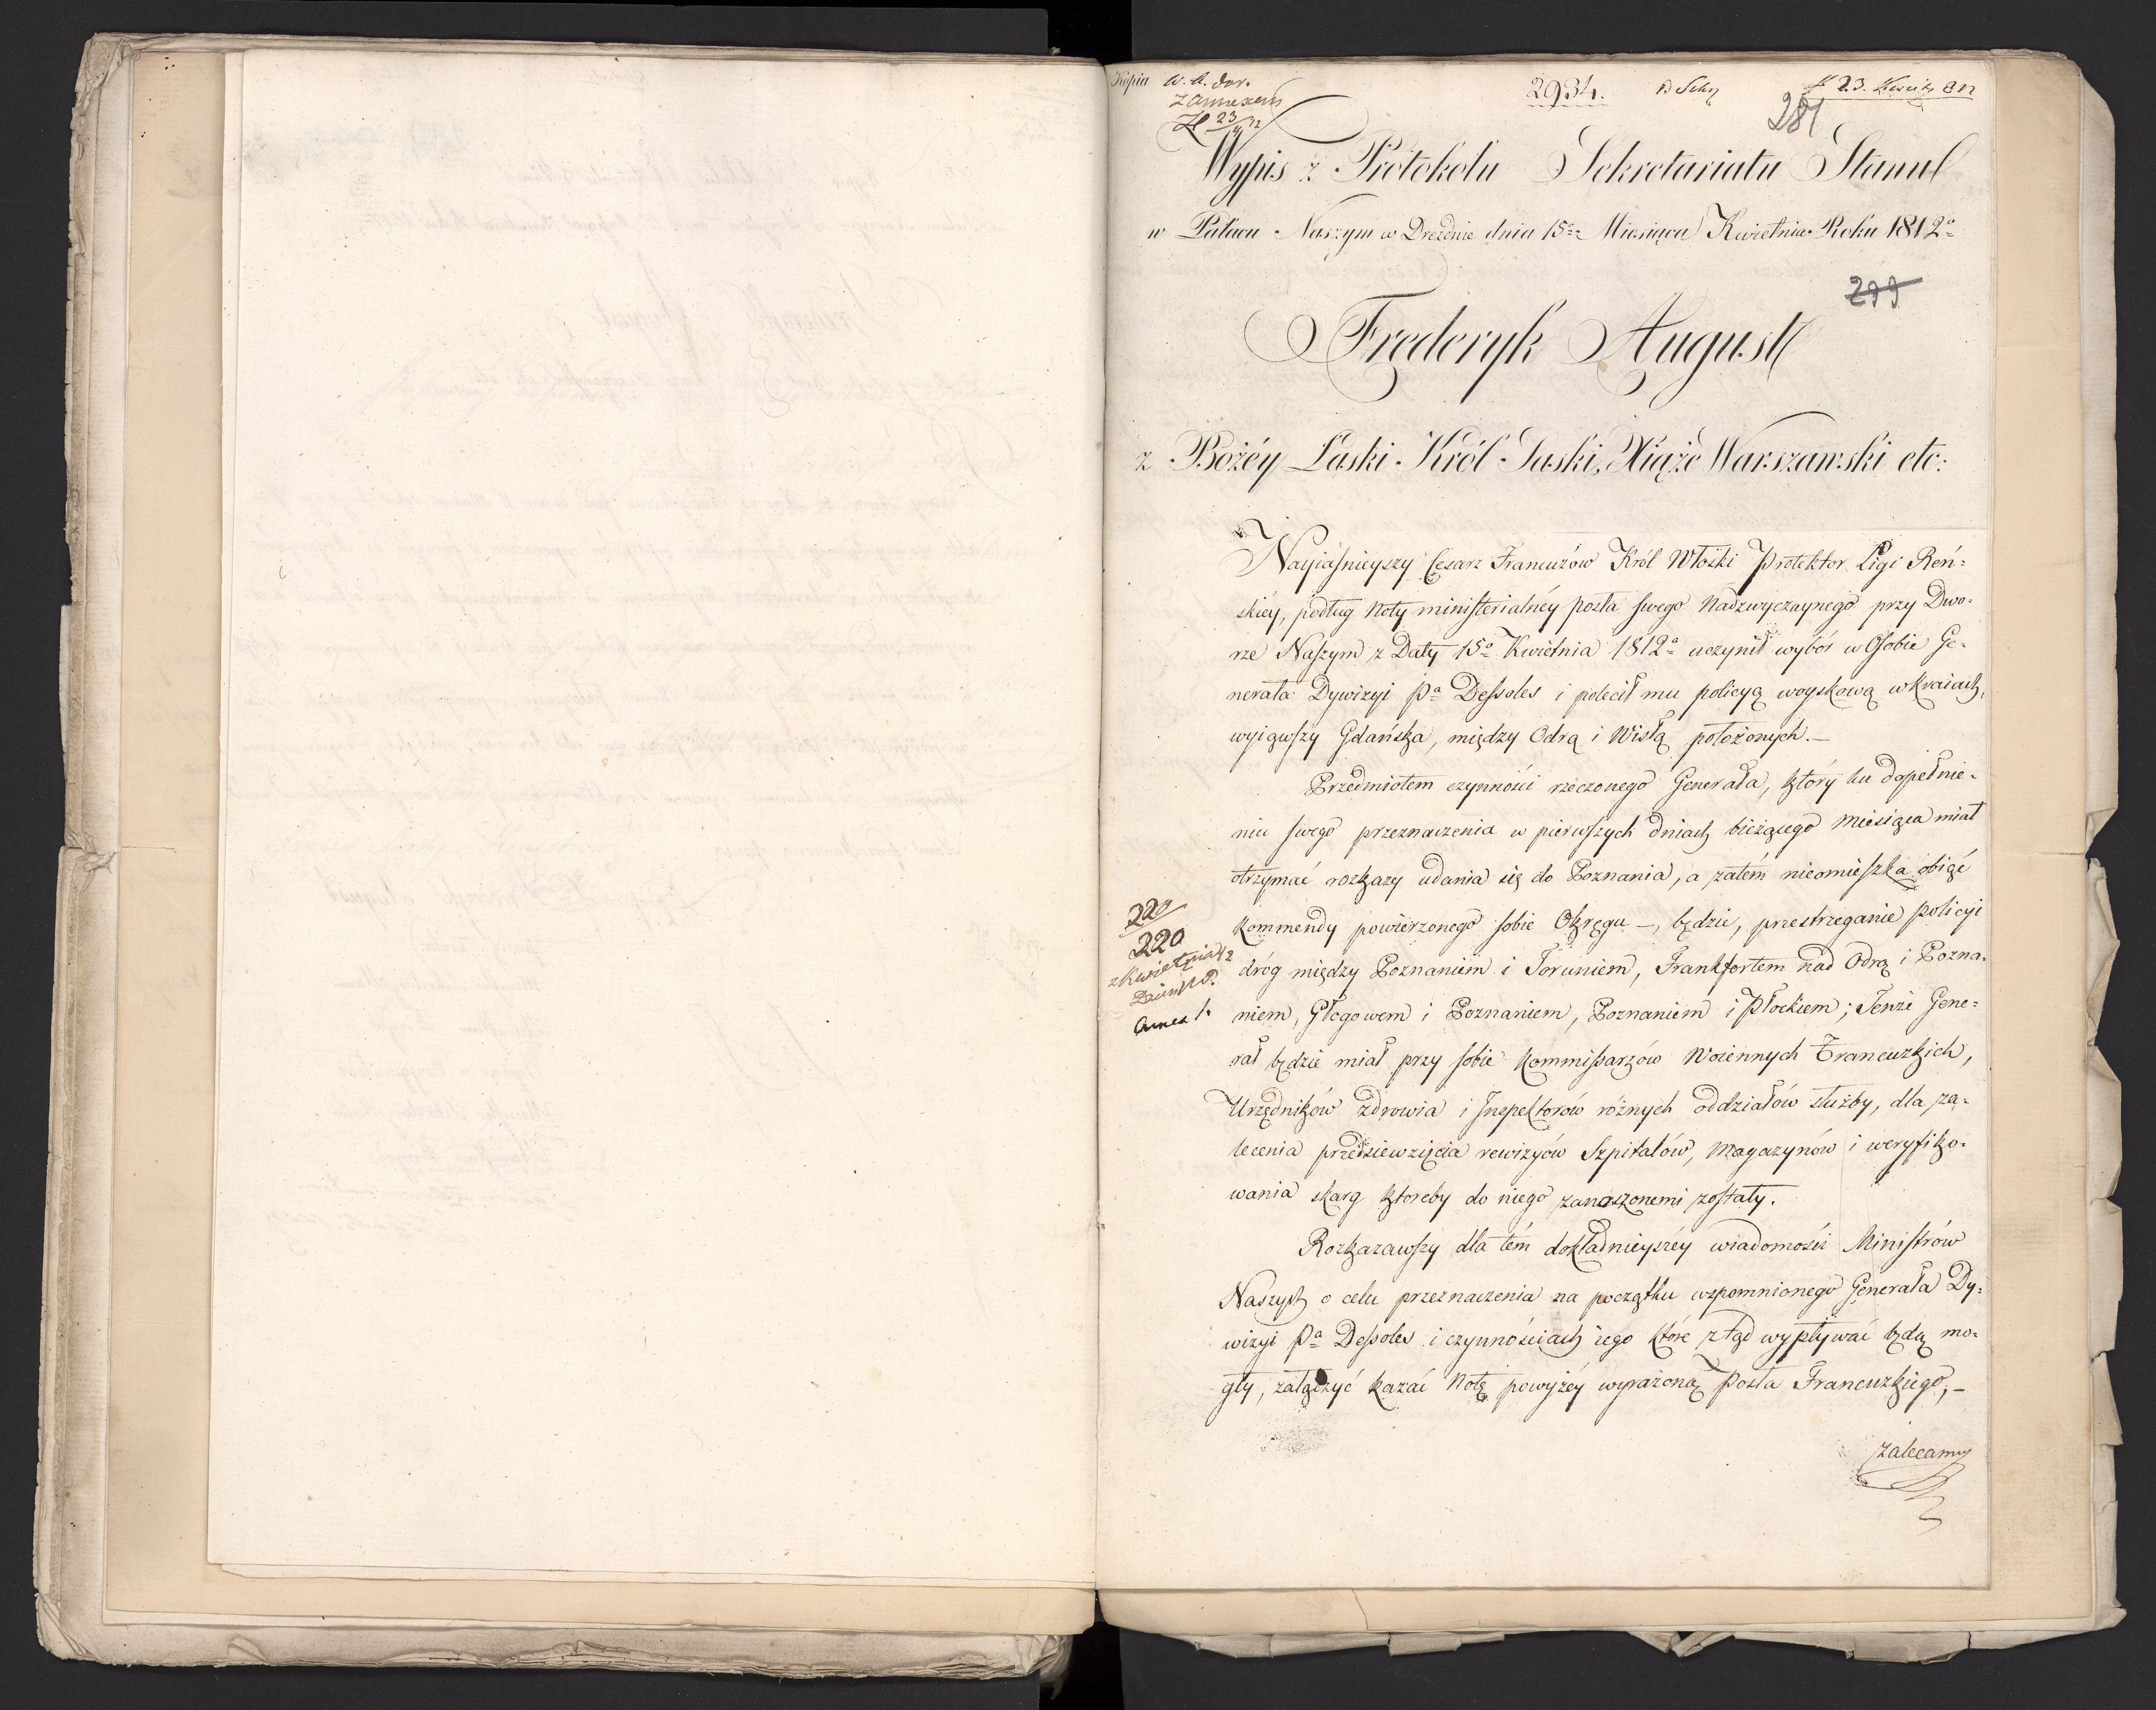 Kópia
z annexem
23
2934.
23. Kwiet. 812
281
Wypis z Protokołu Sekretariatu Stanu
w Pałacu Naszym w Dreźnie dnia 15º Miesiąca Kwietnia Roku 1812º
299
Frederyk August
z Bożéy Łaski Król Saski, Xiąże Warszawski etc:
Nayiaśnieyszy Cesarz Francuzów Król Włoski Protektor Ligi Reń=
skiéy, podług Noty ministerialnéy posła swego Nadzwyczaynego przy Dwo=
rze Naszym z Daty 15º Kwietnia 1812º uczynił wybór w Osobie Ge=
nerała Dywizyi Pª Dessoles i polecił mu policyą woyskową w kraiach,
wyiąwszy Gdańska, między Odrą i Wisłą położonych.—
Przedmiotem czynności rzeczonego Generała, który ku dopełnie=
niu swego przeznaczenia w pierwszych dniach bieżącego miesiąca miał
otrzymać rozkazy udania się do Poznania, a zatém nieomieszka obiąć
kommendy powierzonego sobie Okręgu —, będzie, przestrzeganie policyi
dróg między Poznaniem i Toruniem, Frankfortem nad Odrą i Pozna=
niem, Głogowem i Poznaniem, Poznaniem i Płockiem; Tenże Gene=
rał będzie miał przy sobie Kommissarzów Woiennych Francuzkich,
Urzędników zdrowia i Inspektorów różnych oddziałów służby, dla za=
lecenia przedsiewzięcia rewizyów Szpitalów, Magazynów i weryfiko=
wania skarg któreby do niego zanaszonemi zostały.
220
220
z Kwietnia 12
Annex 1.
Rozkazawszy dla tém dokładnieyszéy wiadomości Ministrów
Naszych o celu przeznaczenia na początku wspomnionego Generała Dy=
wizyi Pª Dessoles i czynnościach iego które ztąd wypływać będą mo=
gły, załączyć kazać Notę powyżéy wyrażoną Posła Francuzkiego,—
zalecamy